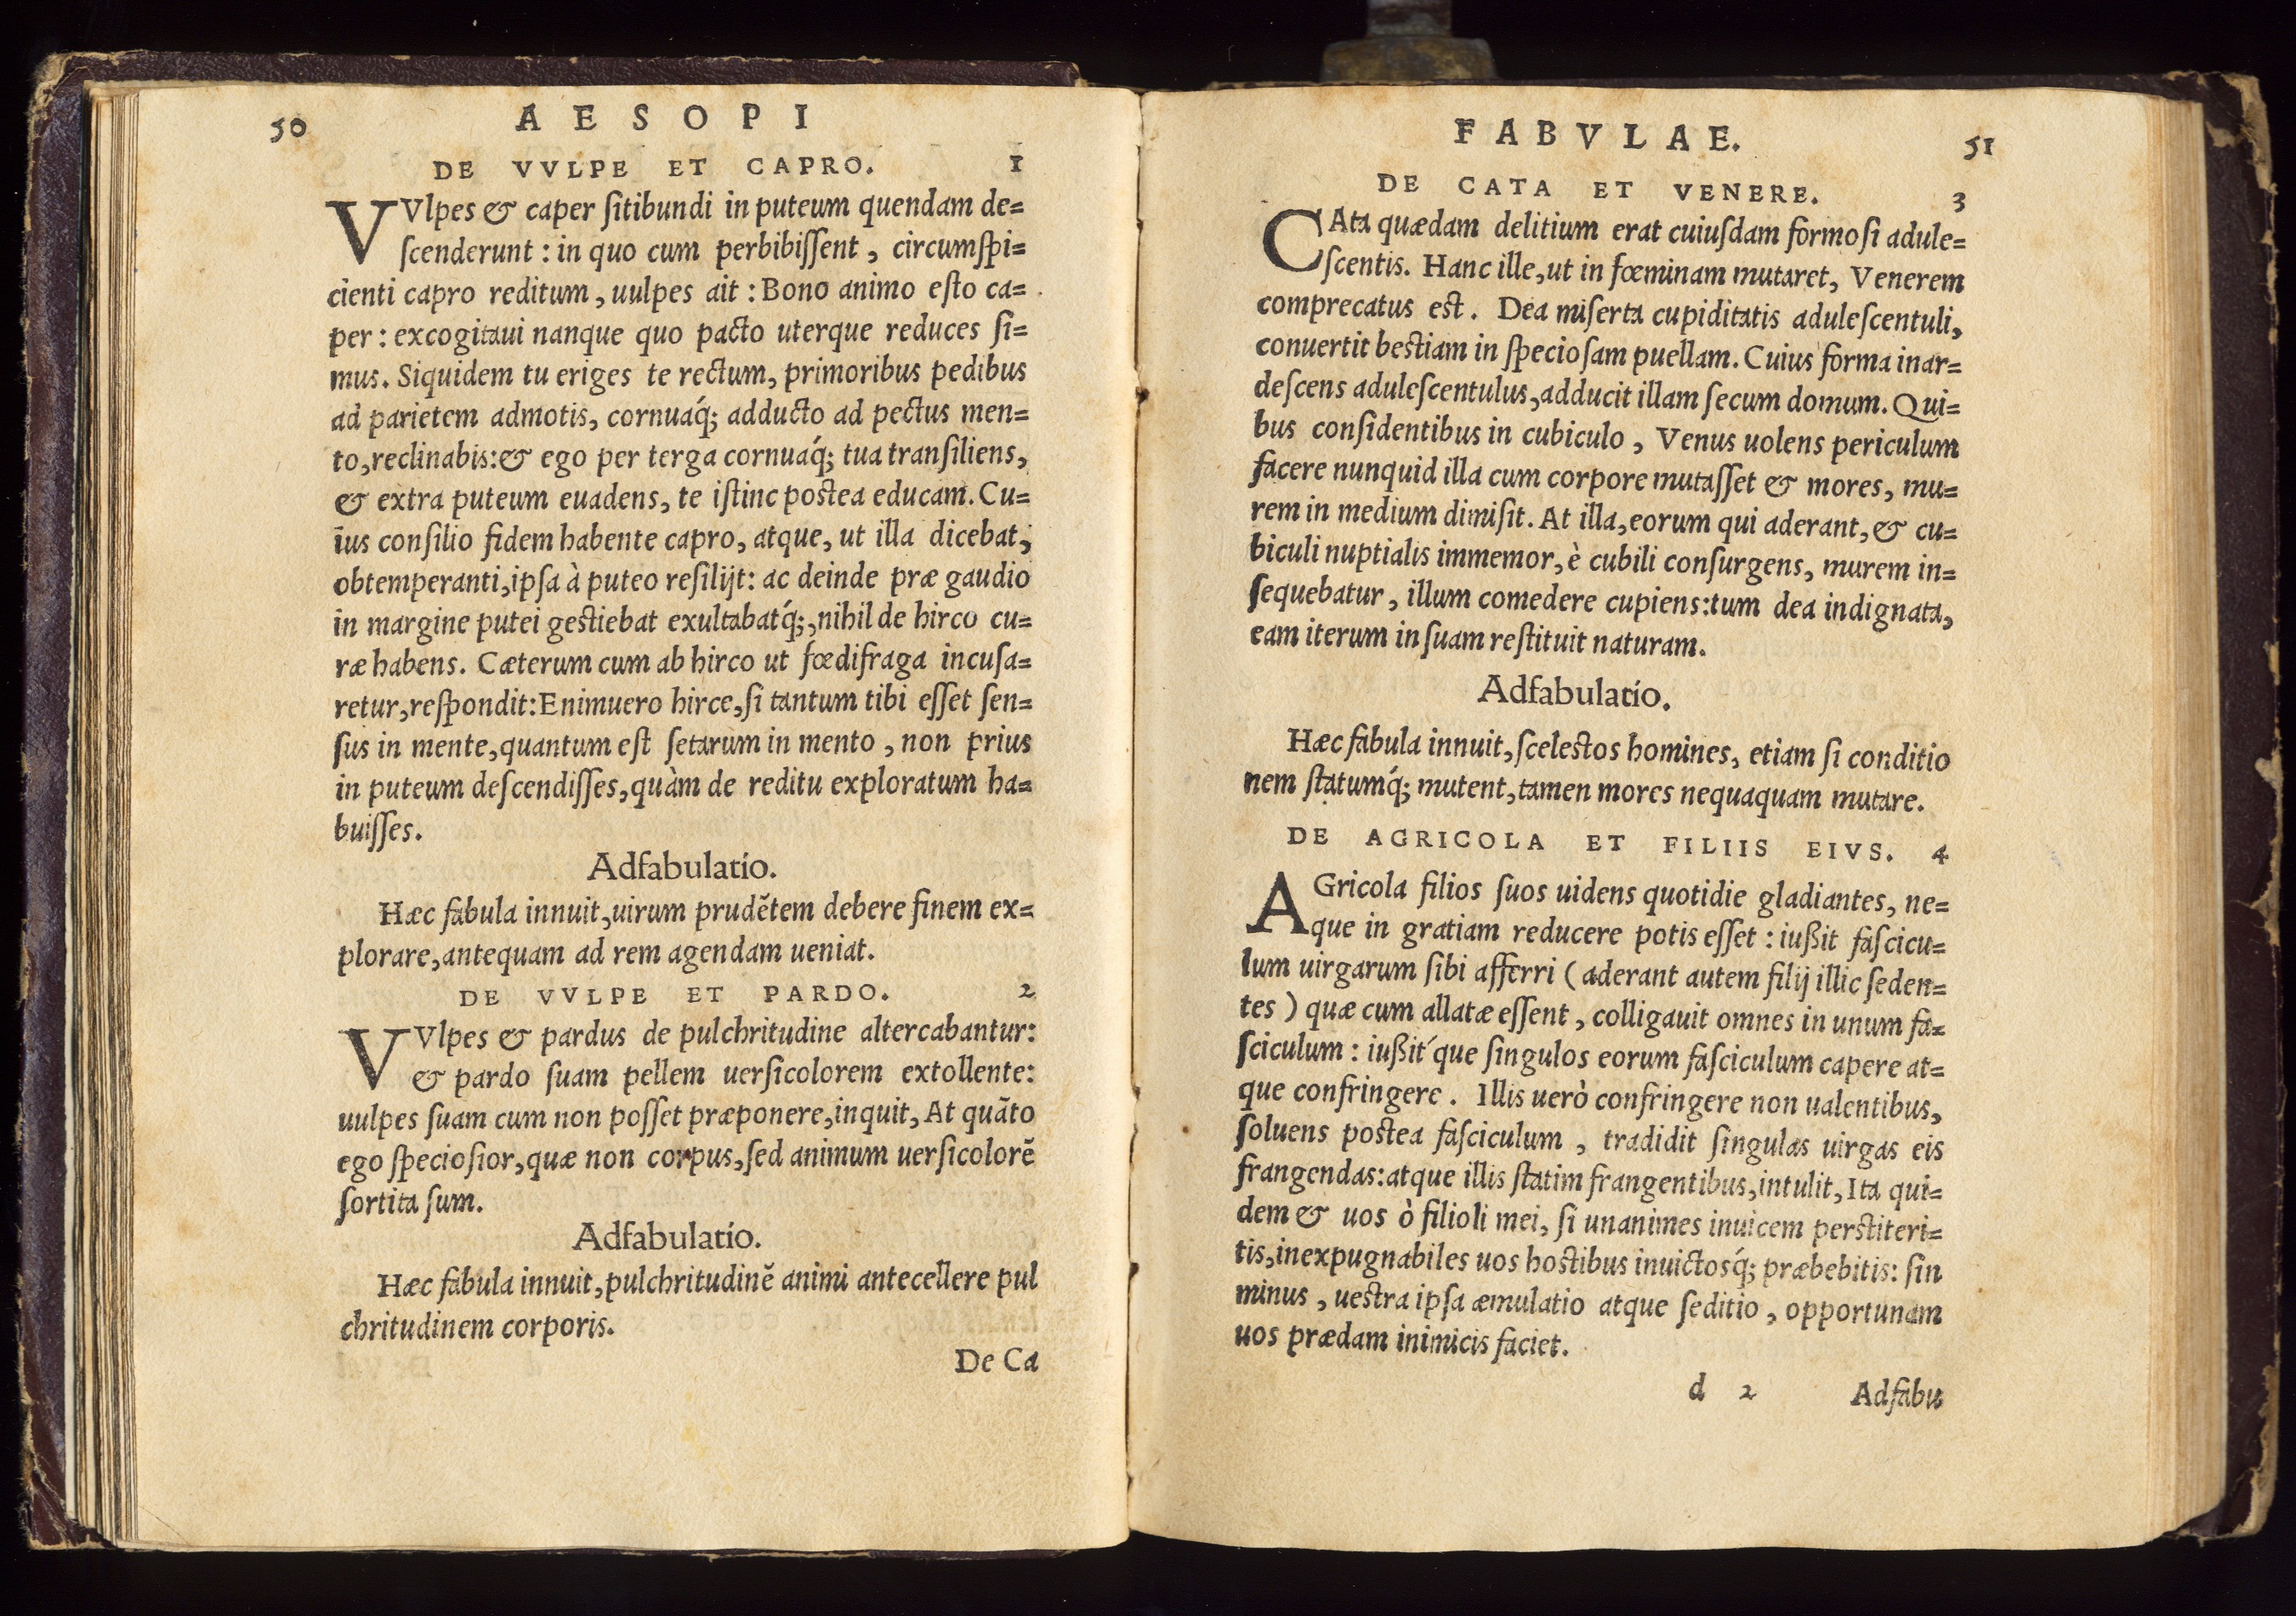 50
AESOPI
DE VVLPE ET CAPRO. 1
VVlpes & caper ſitibundi in puteum quendam de=
ſcenderunt : in quo cum perbibiſſent , circumſpi=
cienti capro reditum , uulpes ait : Bono animo eſto ca=
per : excogitaui nanque quo pacto uterque reduces ſi=
mus. Siquidem tu eriges te rectum, primoribus pedibus
ad parietem admotis, cornuaq́; adducto ad pectus men=
to,reclinabis:& ego per terga cornuaq́; tua tranſiliens,
& extra puteum euadens, te iſtinc postea educam. Cu=
ius conſilio fidem habente capro, atque, ut illa dicebat,
obtemperanti,ipſa à puteo reſilijt: ac deinde præ gaudio
in margine putei gestiebat exultabatq́;,nihil de hirco cu=
ræ habens. Cæterum cum ab hirco ut fœdifraga incuſa=
retur,reſpondit:Enimuero hirce,ſi tantum tibi eſſet ſen=
ſus in mente,quantum eſt ſetarum in mento , non prius
in puteum deſcendiſſes,quàm de reditu exploratum ha=
buiſſes.
Adfabulatio.
Hæc fabula innuit,uirum prudẽtem debere finem ex=
plorare,antequam ad rem agendam ueniat.
DE VVLPE ET PARDO. 2
VVlpes & pardus de pulchritudine altercabantur:
& pardo ſuam pellem uerſicolorem extollente:
uulpes ſuam cum non poſſet præponere,inquit, At quãto
ego ſpecioſior,quæ non corpus,ſed animum uerſicolorẽ
ſortita ſum.
Adfabulatio.
Hæc fabula innuit,pulchritudinẽ animi antecellere pul
chritudinem corporis.
De Ca
FABVLAE.
51
DE CATA ET VENERE. 3
CAta quædam delitium erat cuiuſdam formoſi adule=
ſcentis. Hanc ille,ut in fœminam mutaret, Venerem
comprecatus est. Dea miſerta cupiditatis aduleſcentuli,
conuertit bestiam in ſpecioſam puellam. Cuius forma inar=
deſcens aduleſcentulus,adducit illam ſecum domum. Qui=
bus conſidentibus in cubiculo , Venus uolens periculum
facere nunquid illa cum corpore mutaſſet & mores, mu=
rem in medium dimiſit. At illa,eorum qui aderant,& cu=
biculi nuptialis immemor, è cubili conſurgens, murem in=
ſequebatur , illum comedere cupiens:tum dea indignata,
eam iterum in ſuam reſtituit naturam.
Adfabulatio.
Hæc fabula innuit,ſcelestos homines, etiam ſi conditio
nem ſtatumq́; mutent,tamen mores nequaquam mutare.
DE AGRICOLA ET FILIIS EIVS. 4
AGricola filios ſuos uidens quotidie gladiantes, ne=
que in gratiam reducere potis eſſet : iußit faſcicu=
lum uirgarum ſibi afferri ( aderant autem filij illic ſeden=
tes ) quæ cum allatæ eſſent , colligauit omnes in unum fa=
ſciculum : iußit´que ſingulos eorum faſciculum capere at=
que confringere . Illis uerò confringere non ualentibus,
ſoluens postea faſciculum , tradidit ſingulas uirgas eis
frangendas:atque illis ſtatim frangentibus,intulit, Ita qui=
dem & uos ò filioli mei, ſi unanimes inuicem perstiteri=
tis,inexpugnabiles uos hostibus inuictosq́; præbebitis: ſin
minus , uestra ipſa æmulatio atque ſeditio , opportunam
uos prædam inimicis faciet.
d 2 Adfabu